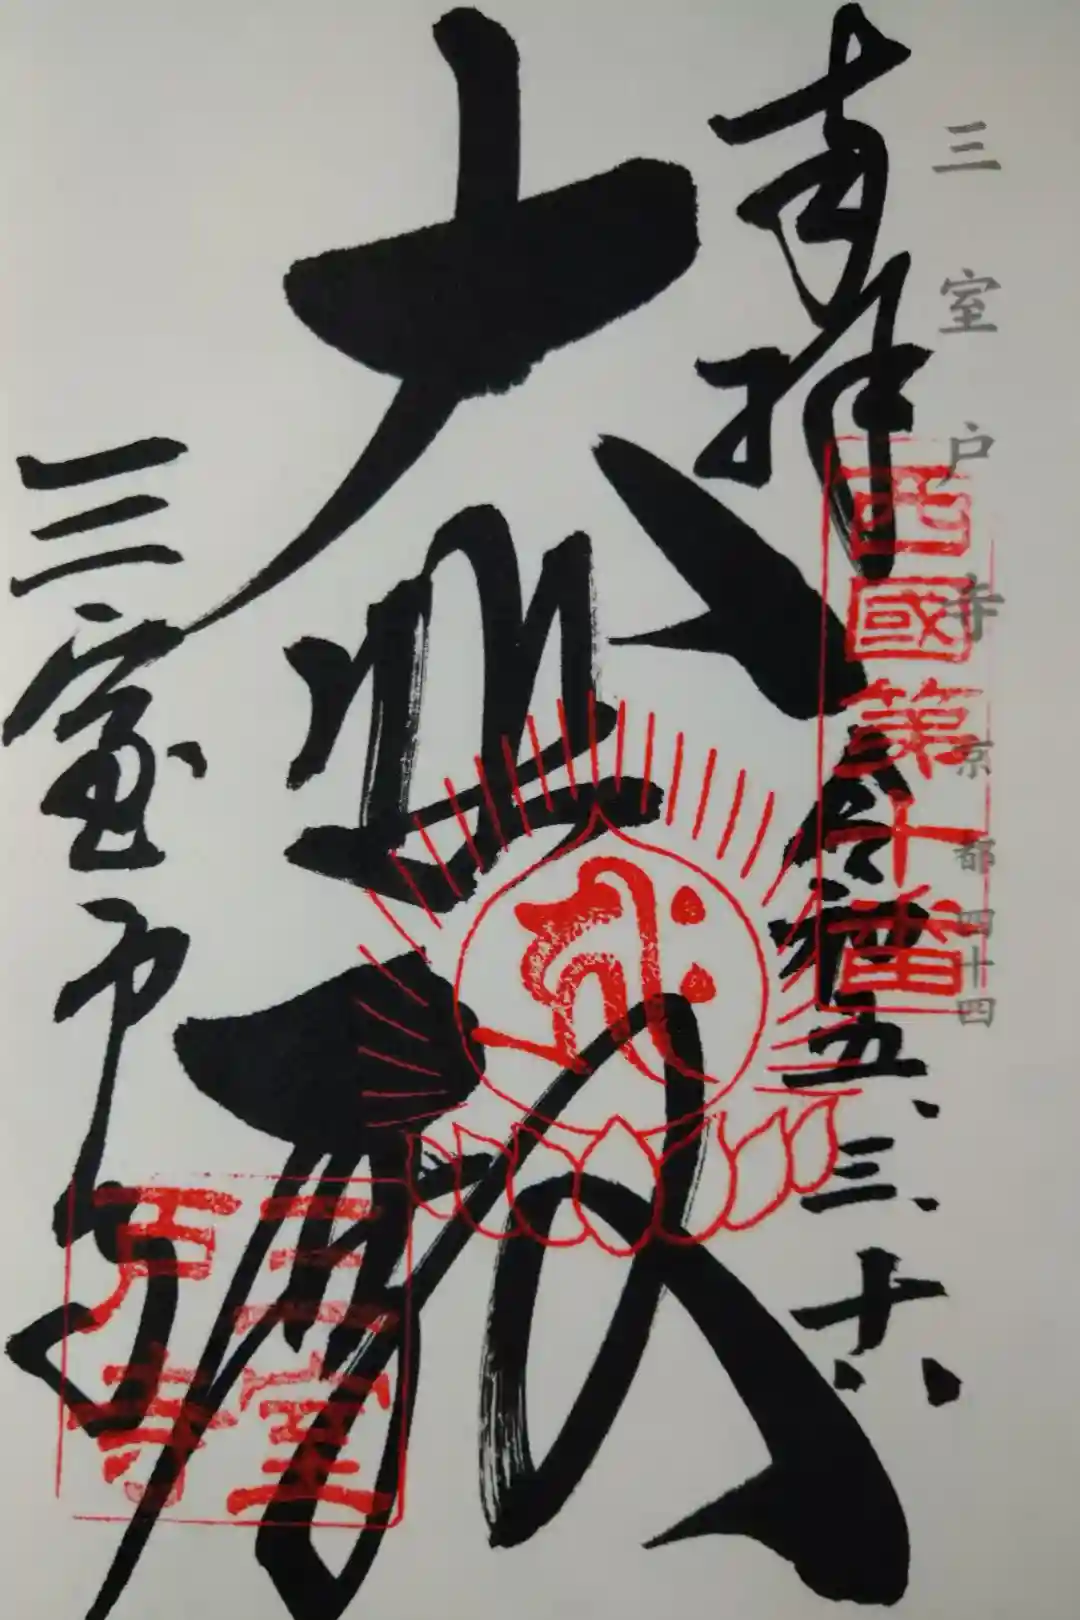 三室戸寺 京都四十四
奉拝
西國第十番
令和五、三、十六
大悲殿
三室戸寺
三室
戸寺